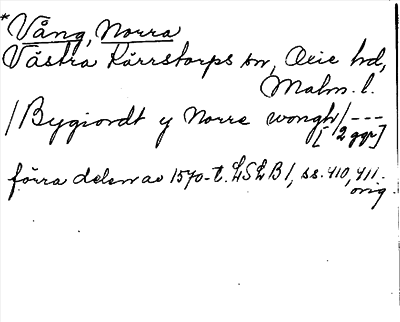 *Vång, Norra
Västra Kärrstorps sn, Oxie hd,
Malm. l.
/Bygiordt y Norre wongh/---
[2 ggr]
förra delen av 1570-t. LSLB 1, ss. 410, 411.
orig.